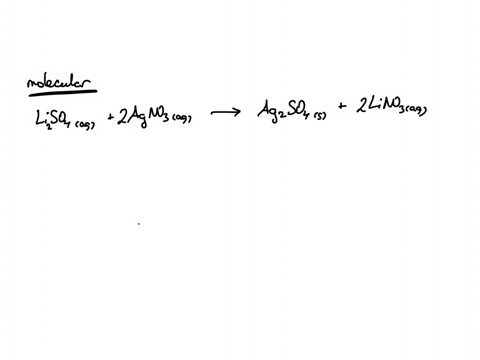 molecular
Li₂SO₄ (aq) + 2AgNO₃ (aq) → Ag₂SO₄ (s) + 2LiNO₃ (aq)